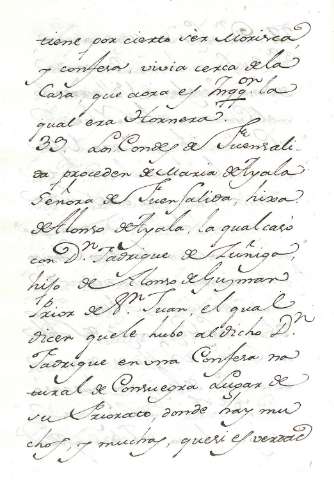 tiene por cierto ser Morisca
y confesa, vivia cerca de la
Casa, que aora es Inqq.on la
qual era Hornera.
39 Los Condes de Fuensali-
da proceden de Maria de Ayala
Señora de Fuensalida, hixa
de Alonso de Ayala, la qual casó
con D.n Fadrique de Zuñiga
hijo de Alonso de Guzman
Prior de S.n Juan, el qual
dicen que le hubo al dicho D.n
Fadrique en una Confesa na
tural de Consuegra Lugar de
su Priorato, donde hay mu
chos, y muchas, quesi es verdad